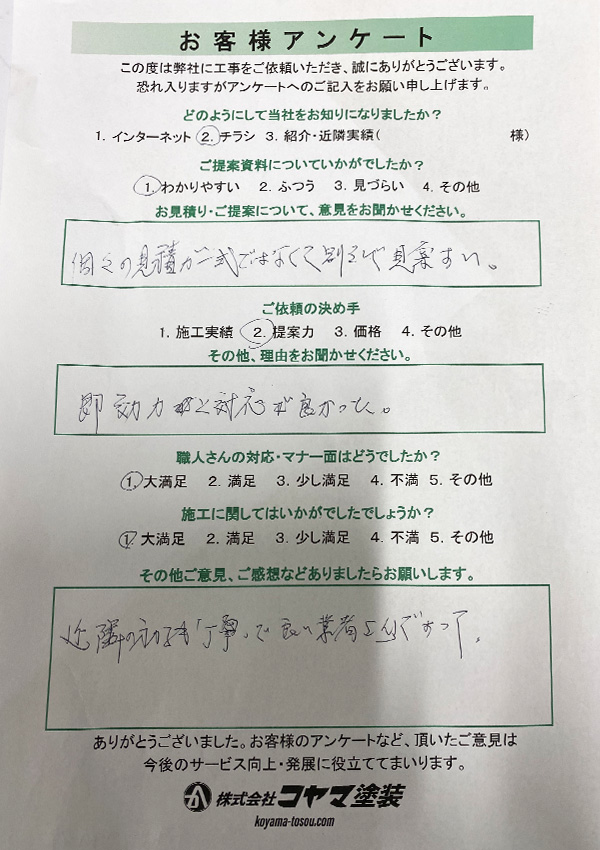 お客様アンケート
この度は弊社に工事をご依頼いただき、誠にありがとうございます。
恐れ入りますがアンケートへのご記入をお願い申し上げます。
どのようにして当社をお知りになりましたか?
1. インターネット 2. チラシ 3. 紹介・近隣実績( 様)
ご提案資料についていかがでしたか?
1. わかりやすい 2. ふつう 3. 見づらい 4. その他
お見積り・ご提案について、意見をお聞かせください。
個々の見積が一式ではなくて
ご依頼の決め手
1. 施工実績 2. 提案力 3. 価格 4. その他
その他、理由をお聞かせください。
即効力と対応が良かった。
職人さんの対応・マナー面はどうでしたか?
1. 大満足 2. 満足 3. 少し満足 4. 不満 5. その他
施工に関してはいかがでしたでしょうか?
1. 大満足 2. 満足 3. 少し満足 4. 不満 5. その他
その他ご意見、ご感想などありましたらお願いします。
近隣の 丁寧で良い業者さんで
ありがとうございました。お客様のアンケートなど、頂いたご意見は
今後のサービス向上・発展に役立ててまいります。
株式会社コヤマ塗装
koyama-tosou.com